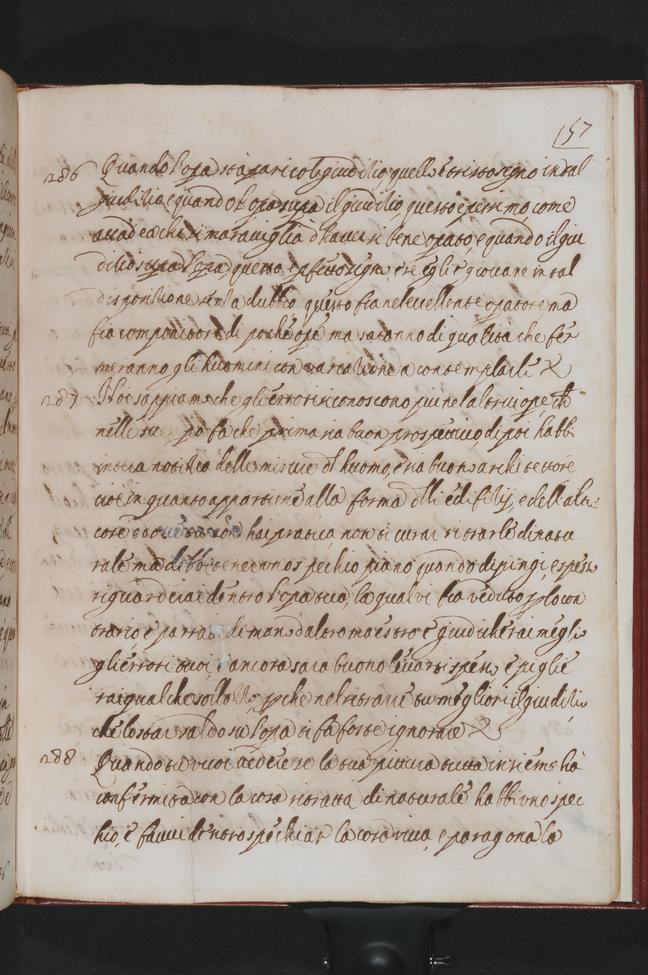 157
286 Quando l'opa sta pari col giuditio quello è tristo segno in tal
giuditio e quando l'opa supa il giuditio questo è pessimo come
accade a chi si maraviglia d'haver si bene opato, e quando il giu
ditio supa l'opa questo è pfetto segno, e se egli è giovane in tal
dispositione senza dubbio questo fia nel eccellente opatore ma
fia componitore di poche ope, ma saranno di qualita che fer
meranno gli huomini con a contemplarle
287 Noi sappiamo che gli errori si conoscono piu nel altrui ope, ch
nelle sue, po fa che prima sia buon prospettivo di poi habbi
intera notitia delle misure d l'huomo, e sia buono architettore
cioè in quanto appartiene alla forma dlli edifitij, e dell altre
cose e dove non hai pratica non ti curar ritrarle di natu
rale ma debbi tenere uno specchio piano quando dipingi, e spesso
riguarderai dentro l'opa tua, la qual vi fia veduta p lo con
trario e parra di mano d'altro maestro e giudicherai meglio
gli errori tuoi, e ancora sara buono levarsi spesso e piglie
rai qualche sollazzo, pche nel ritornare tu meglior il giuditio
che lo star saldo su l'opa ti fa forte ignorare
288 Quando tu vuoi vedere se la tua pittura tutta insieme ha
conformita con la cosa ritratta di naturale habbi uno spec
chio, e favvi dentro specchiar la cosa viva, e paragona la